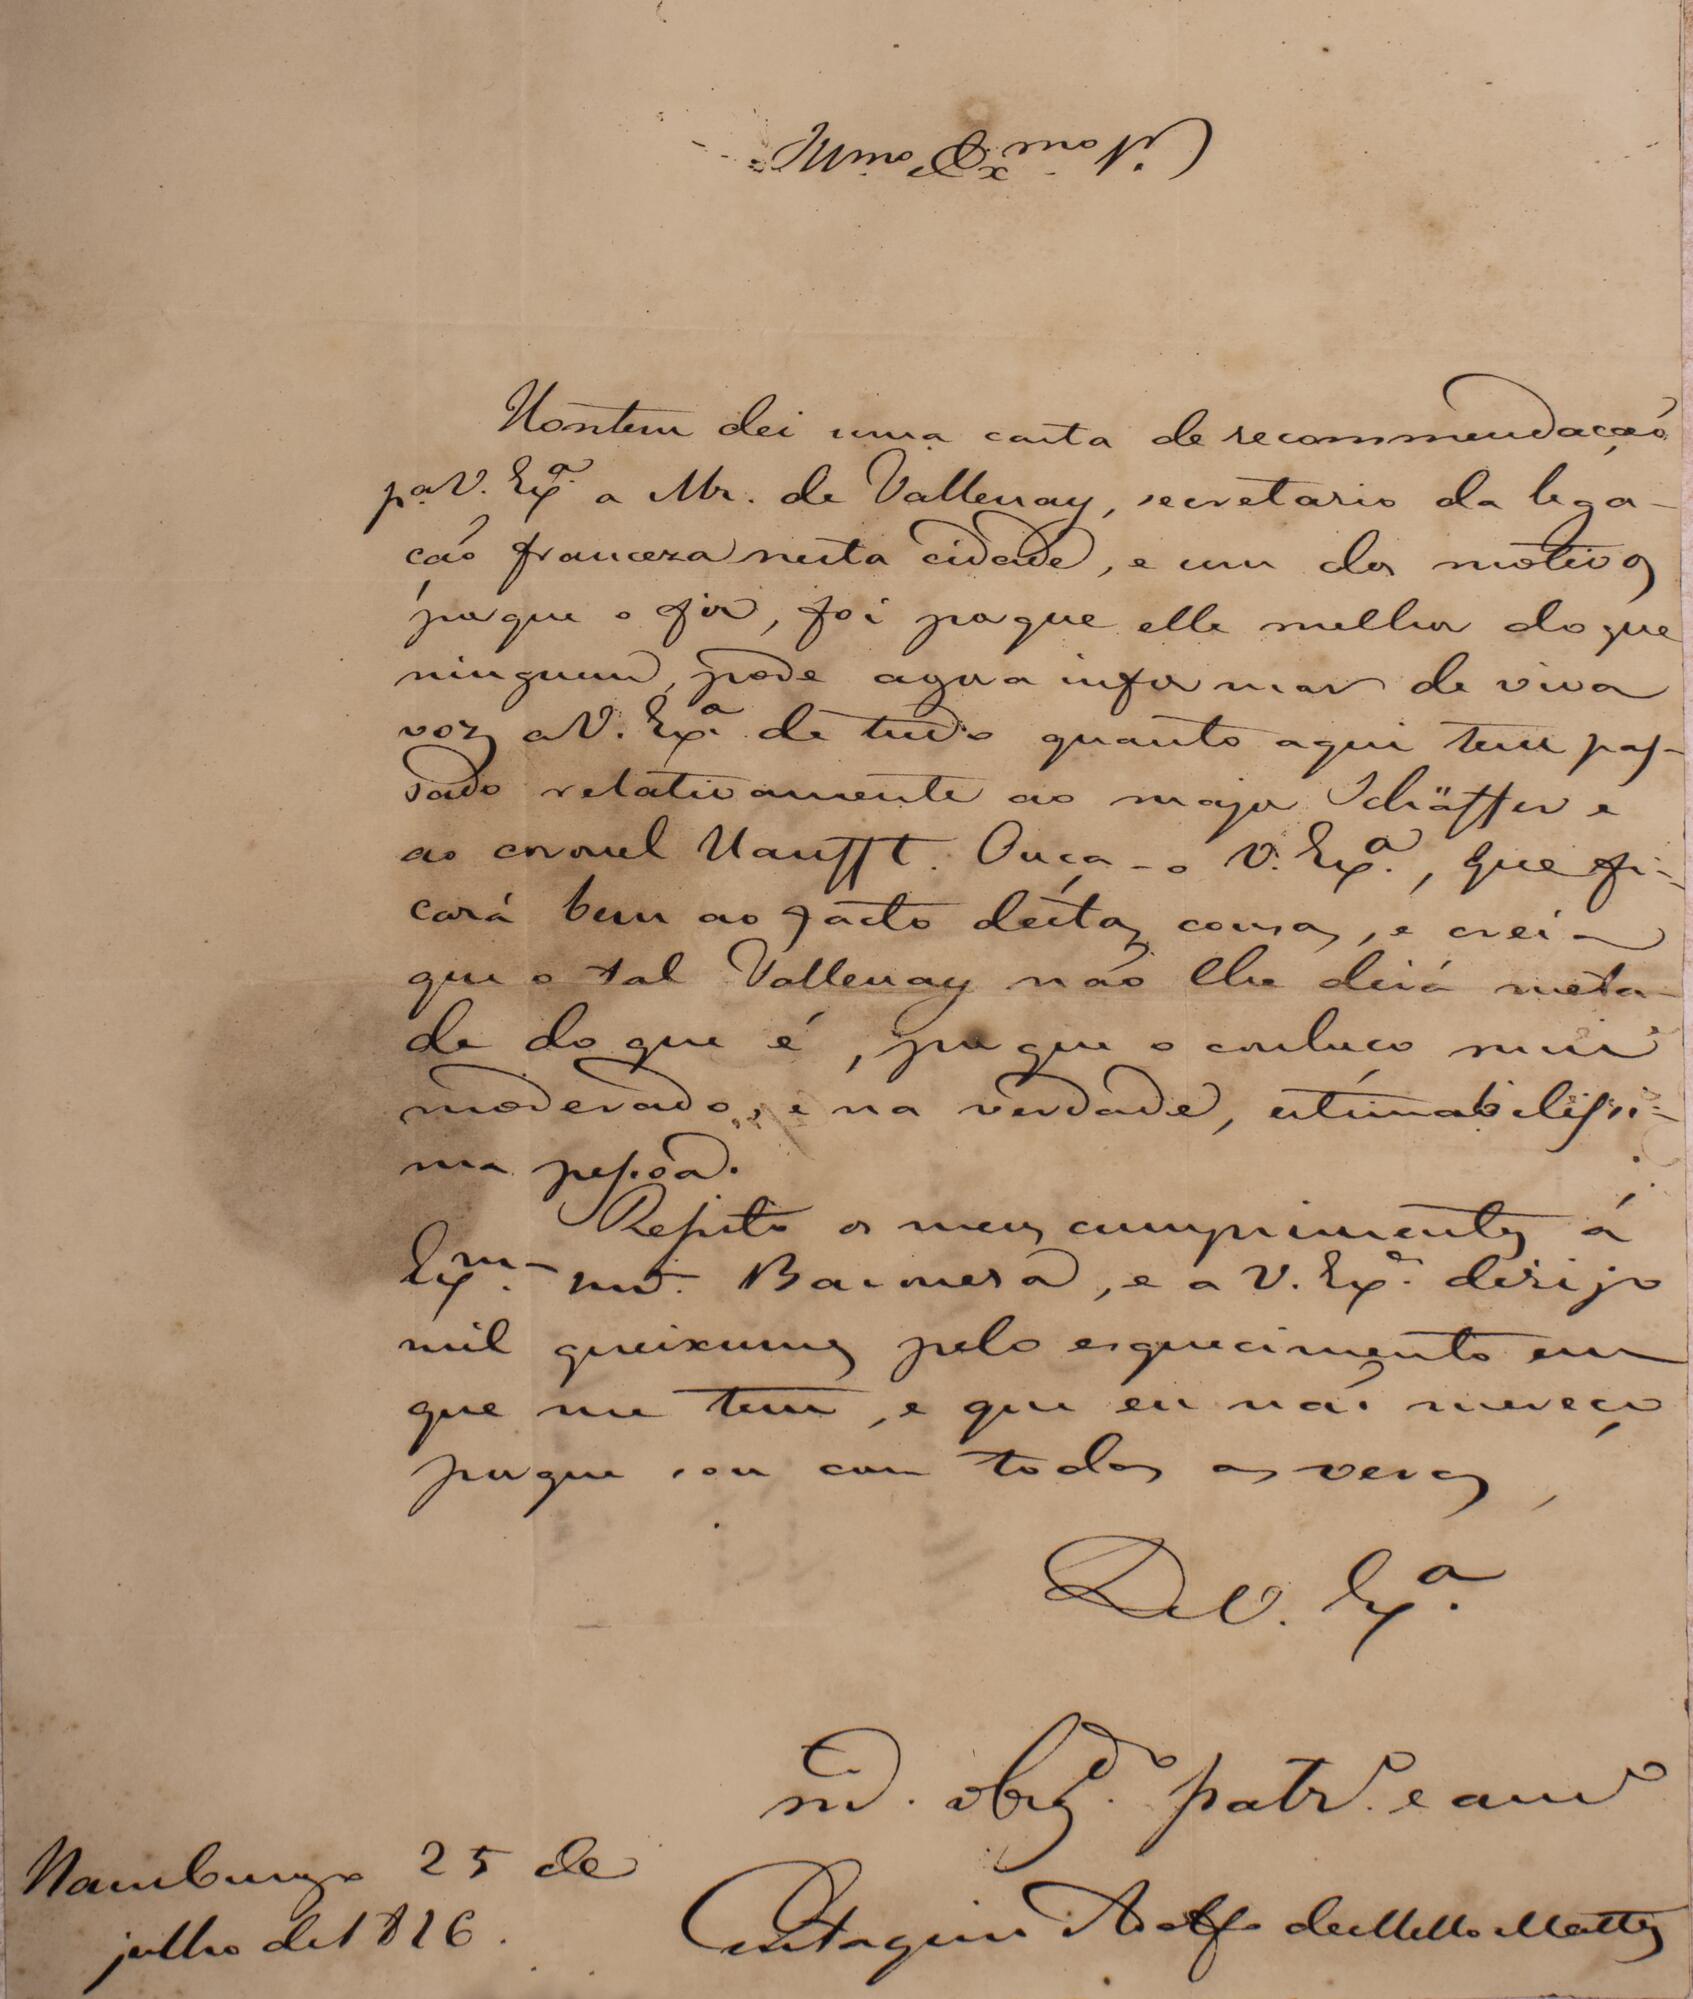 Hontem dei uma carta de recommendação
pª. V. Exª. a Mr. de Vallenay, secretario da lega-
ção franceza nesta cidade, e um dos motivos
porque o fiz, foi porque elle melhor do que
ninguem, pode agora informar de viva
voz a V. Exª. de tudo quanto aqui tem pas-
sado relativamente ao major Schäffer e
ao coronel Hanfft. Ouça-o V. Exª., que fi-
cará bem ao facto destas cousas, e creia
que o tal Vallenay não lhe dirá meta-
de do que é, porque o conheço mui
moderado, e na verdade, estimabilissi-
ma pessoa.
Repito os meus cumprimentos á
Exm.ª mr. Baroneza, e a V. Exª. dirijo
mil queixumes pelo esquecimento em
que me tem, e que eu não mereço
porque sou com todas as veras,
De V. Exª.
mt.º obrg.dº patr.º e am.º
Eustaquio Adolfo de Mello Mattos
Hamburgo 25 de
julho de 1826.